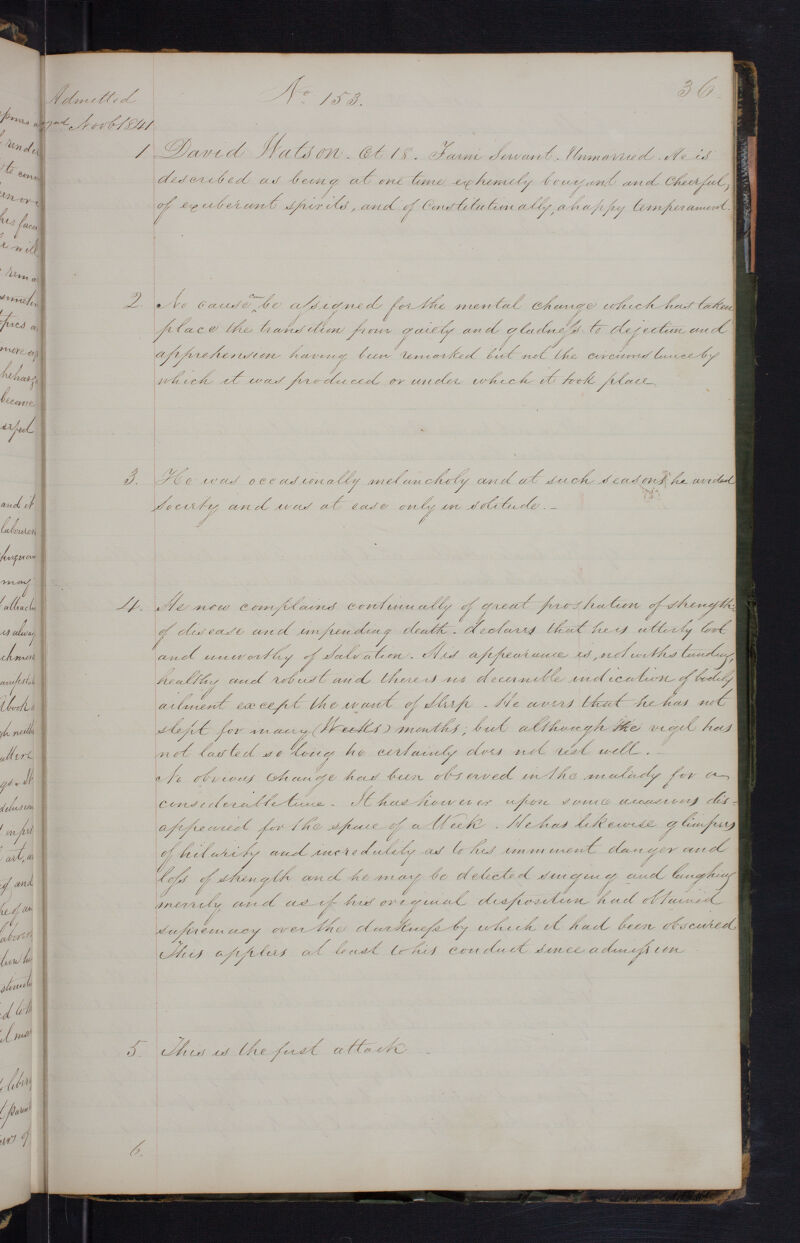 Admitted
No 153.
36
Nov 6 1841
1 David Watson. Æt 18. Farm Servant. Unmarried. He is
described as being at one time extremely bouyant and cheerful,
of exuberant spirits, and of constitutionally, a happy temperament.
2. No cause can be assigned for the mental change which has taken
place the transition from gaiety and gladness to dejection and
apprehension having been remarked but not the circumstance by
which it was produced or under which it took place.
3. He was occasionally melancholy and at such seasons he avoided
Society and was at ease only in solitude.–
4. He now complains continually of great prostration of strength:
of disease and impending death. declares that he is utterly lost
and unworthy of Salvation. His appearance is, notwithstanding,
healthy and robust and there is no discernible indication of bodily
ailment except the want of sleep. He avers that he has not
slept for many (Weeks) months; but although the vigil has
not lasted so long he certainly does not rest well.–
No obvious change has been observed in the malady for a
considerable time. It has however upon some occasions dis=
appeared for the space of a Week. He has likewise glimpses
of hilarity and incredulity as to his imminent danger and
loss of strength and he may be detected singing and laughing
merrily and as if his original disposition had obtained
supremacy over the darkness by which it had been obscured
This applies at least to his conduct since admission
5. This is the first attack –
6.